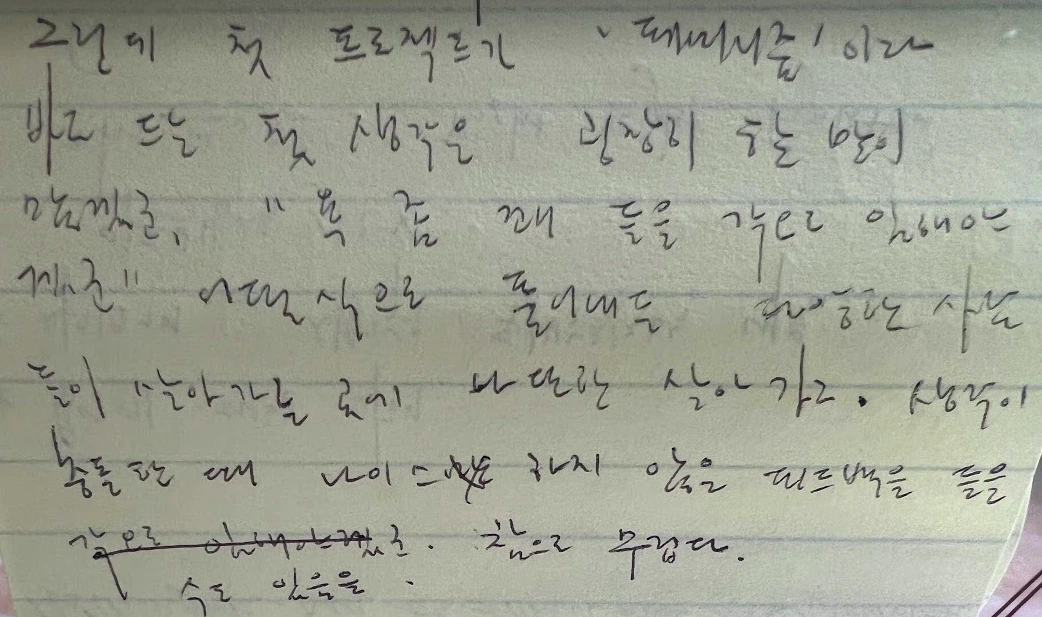 그런데 첫 프로젝트가 '페미니즘'이라
바로 드는 첫 생각은 굉장히 할 말이
많겠군, "욕 좀 꽤 들을 각오로 임해야
겠군" 어떤 식으로 풀어내든 다양한 사람
들이 살아가는 곳에 다양한 삶아가고. 생각이
충돌할 때 나이스 하지 않은 피드백을 들을
각오로 임해야겠군. 참으로 무겁다.
수도 있음을.